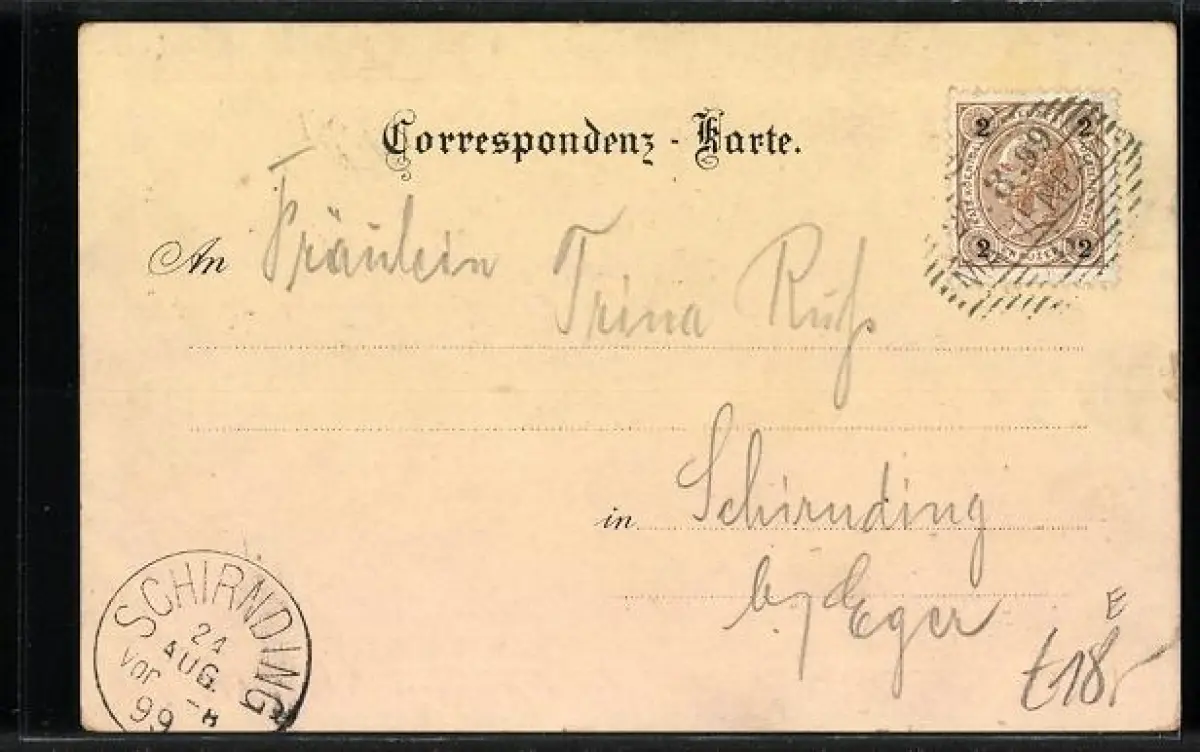 Correspondenz - Karte.
2 2
2 2
8 99
An Fräulein
Trina Ruß
in Schirnding
b/Eger
E
18,-
SCHIRNDING
21
AUG.
Vor
99